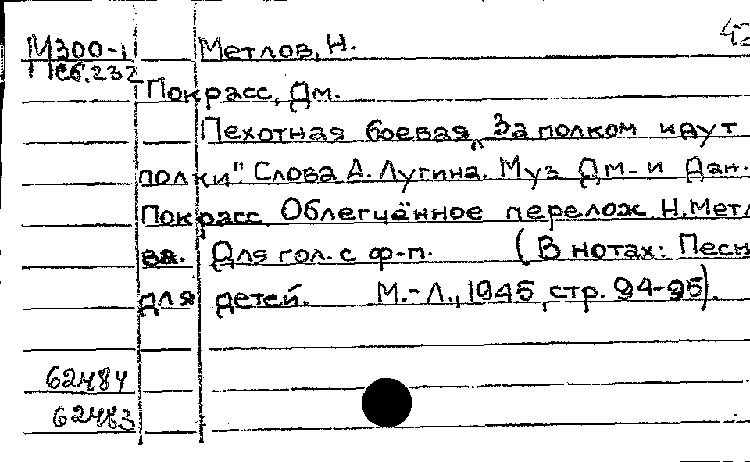 М300-1 Метлов, Н.
Псб.232
Покрасс, Дм.
Пехотная боевая „За полком идут
полки". Слова А. Лугина. Муз Дм. и Дан.
Покрасс. Облегчённое перелож. Н.Метл
ва. Для гол. с ф-п. (В нотах: Песн
для детей. М.-Л., 1945, стр. 94-95).
62484
62483